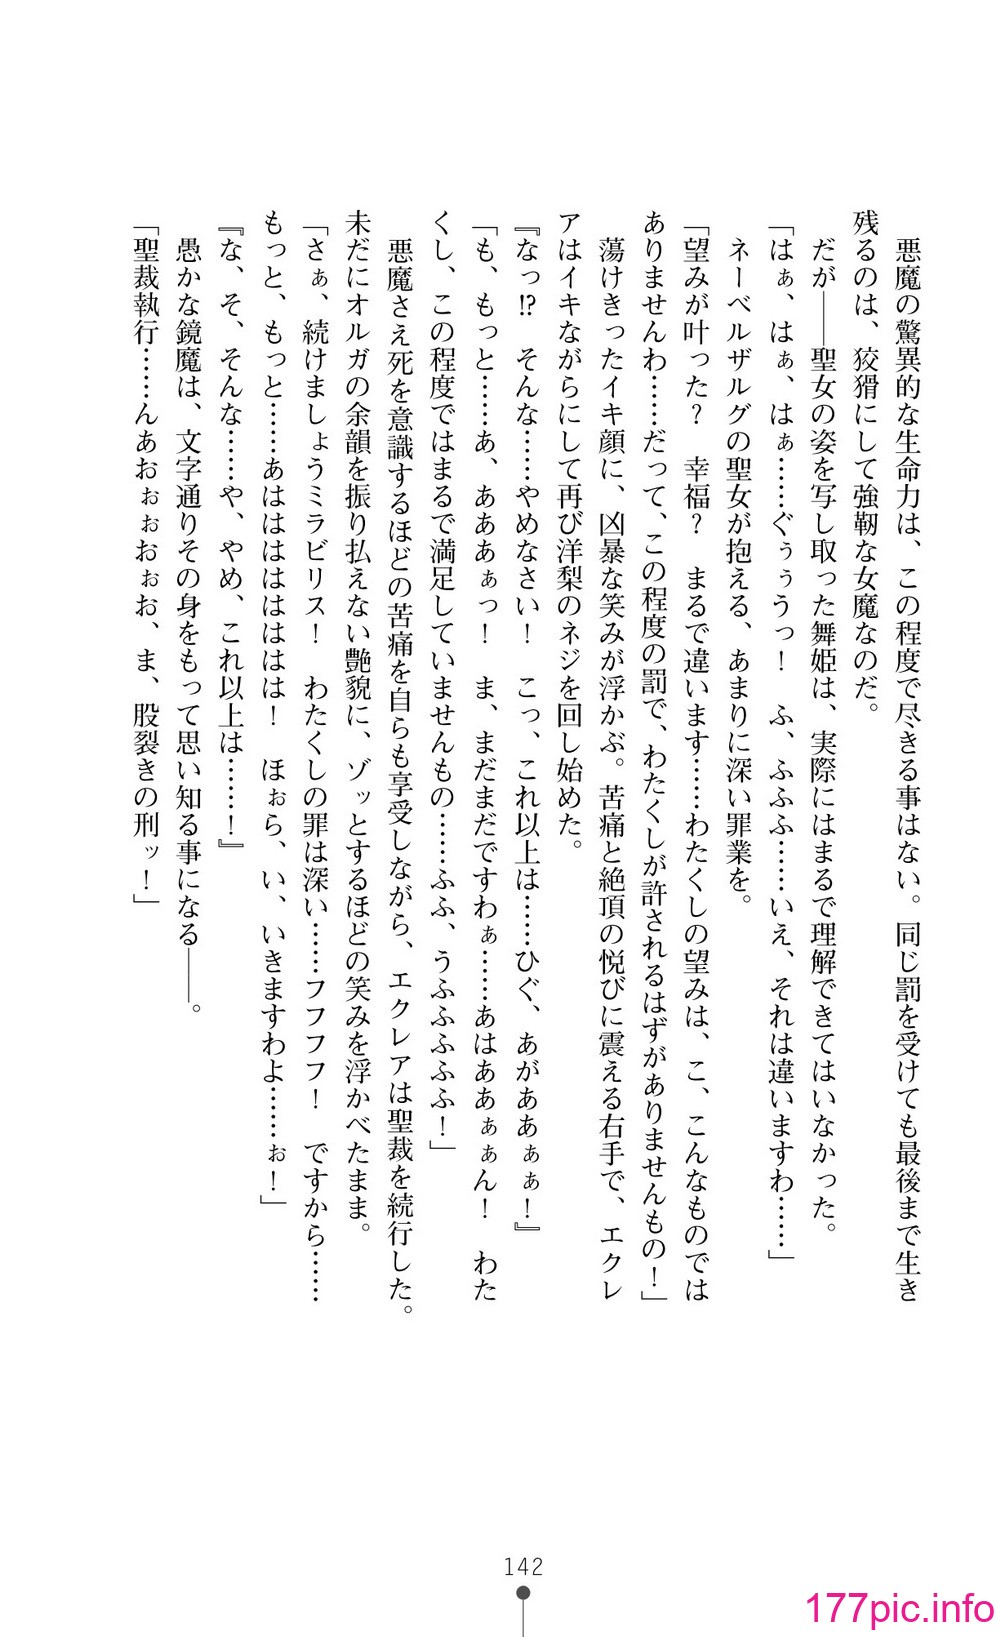 悪魔の驚異的な生命力は、この程度で尽きる事はない。同じ罰を受けても最後まで生き
残るのは、狡猾にして強靭な女魔なのだ。
だが――聖女の姿を写し取った舞姫は、実際にはまるで理解できてはいなかった。
「はぁ、はぁ、はぁ……ぐぅぅうっ！　ふ、ふふふ……いえ、それは違いますわ……」
ネーベルザルグの聖女が抱える、あまりに深い罪業を。
「望みが叶った？　幸福？　まるで違います……わたくしの望みは、こ、こんなものでは
ありませんわ……だって、この程度の罰で、わたくしが許されるはずがありませんもの！」
蕩けきったイキ顔に、凶暴な笑みが浮かぶ。苦痛と絶頂の悦びに震える右手で、エクレ
アはイキながらにして再び洋梨のネジを回し始めた。
『なっ!?　そんな……やめなさい！　こっ、これ以上は……ひぐ、あがああぁぁ！』
「も、もっと……あ、あああぁっ！　ま、まだまだですわぁ……あはああぁぁん！　わた
くし、この程度ではまるで満足していませんもの……ふふ、うふふふふ！」
悪魔さえ死を意識するほどの苦痛を自らも享受しながら、エクレアは聖裁を続行した。
未だにオルガの余韻を振り払えない艶貌に、ゾッとするほどの笑みを浮かべたまま。
「さぁ、続けましょうミラビリス！　わたくしの罪は深い……フフフフ！　ですから……
もっと、もっと……あはははははははは！　ほぉら、い、いきますわよ……ぉ！」
『な、そ、そんな……や、やめ、これ以上は……！』
愚かな鏡魔は、文字通りその身をもって思い知る事になる――。
「聖裁執行……んあおぉぉおぉお、ま、股裂きの刑ッ！」
142
177pic.info